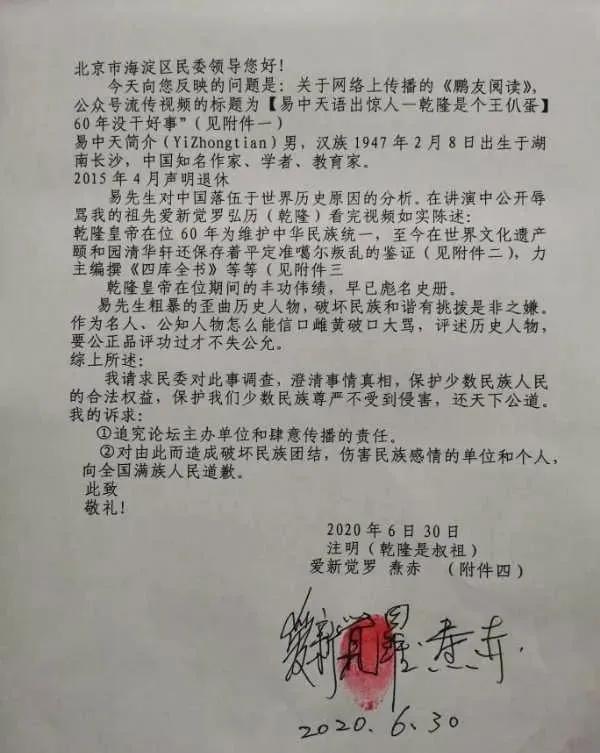 北京市海淀区民委领导您好!
今天向您反映的问题是:关于网络上传播的《鹏友阅读》,
公众号流传视频的标题为【易中天语出惊人—乾隆是个王仈蛋】
60年没干好事”(见附件一)
易中天简介(YiZhongtian)男,汉族1947年2月8日出生于湖
南长沙,中国知名作家、学者、教育家。
2015年4月声明退休
易先生对中国落伍于世界历史原因的分析。在讲演中公开辱
骂我的祖先爱新觉罗弘历(乾隆)看完视频如实陈述:
乾隆皇帝在位60年为维护中华民族统一,至今在世界文化遗产
颐和园清华轩还保存着平定准噶尔叛乱的鉴证(见附件二),力
主编撰《四库全书》等等(见附件三
乾隆皇帝在位期间的丰功伟绩,早已彪名史册。
易先生粗暴的歪曲历史人物,破坏民族和谐有挑拨是非之嫌。
作为名人、公知人物怎么能信口雌黄破口大骂,评述历史人物,
要公正品评功过才不失公允。
综上所述:
我请求民委对此事调查,澄清事情真相,保护少数民族人民
的合法权益,保护我们少数民族尊严不受到侵害,还天下公道。
我的诉求:
①追究论坛主办单位和肆意传播的责任。
②对由此而造成破坏民族团结,伤害民族感情的单位和个人,
向全国满族人民道歉。
此致
敬礼!
2020年6月30日
注明(乾隆是叔祖)
爱新觉罗 焘赤 (附件四)
爱新觉罗·焘赤.
2020.6.30